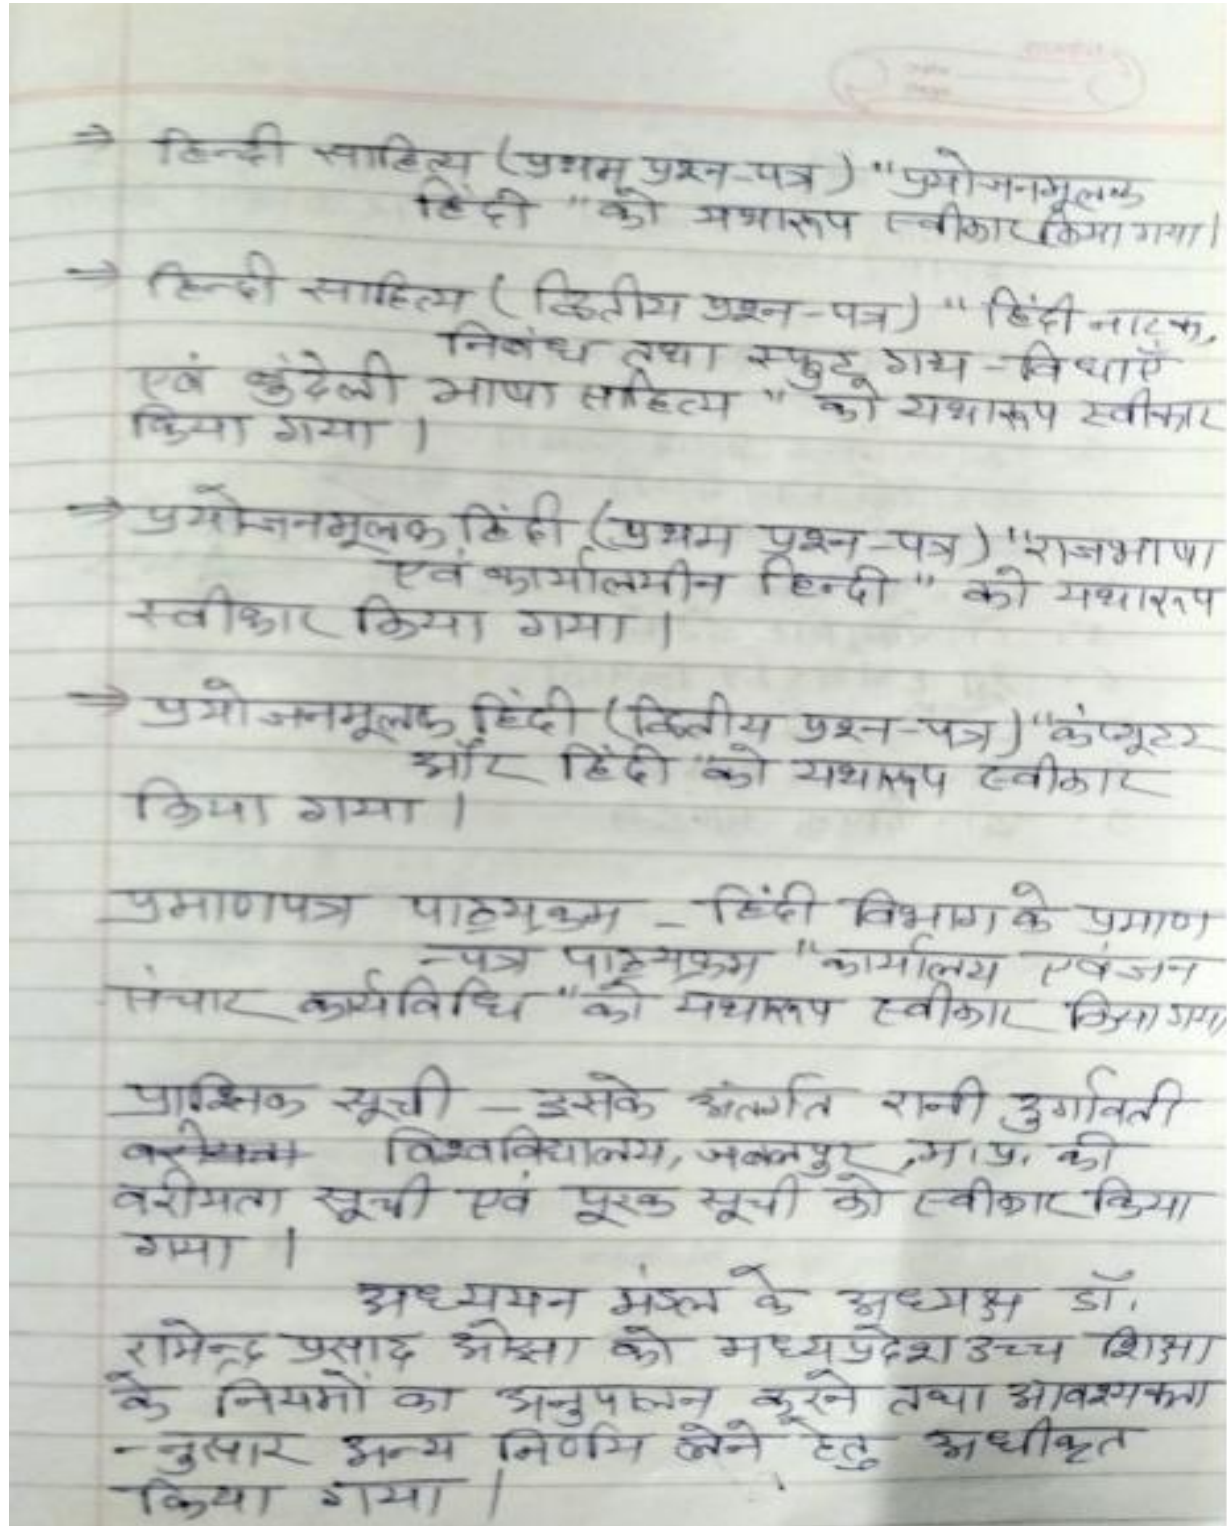 ⇒ हिन्दी साहित्य (प्रथम प्रश्न-पत्र) "प्रयोजनमूलक
हिंदी" को यथारूप स्वीकार किया गया।
⇒ हिन्दी साहित्य (द्वितीय प्रश्न-पत्र) "हिंदी नाटक,
निबंध तथा स्फुट गद्य-विधाएँ
एवं बुंदेली भाषा साहित्य" को यथारूप स्वीकार
किया गया।
⇒ प्रयोजनमूलक हिंदी (प्रथम प्रश्न-पत्र) "राजभाषा
एवं कार्यालयीन हिन्दी" को यथारूप
स्वीकार किया गया।
⇒ प्रयोजनमूलक हिंदी (द्वितीय प्रश्न-पत्र) "कंप्यूटर
और हिंदी" को यथारूप स्वीकार
किया गया।
प्रमाणपत्र पाठ्यक्रम - हिंदी विभाग के प्रमाण
-पत्र पाठ्यक्रम "कार्यालय एवं जन
संचार कार्यविधि" को यथारूप स्वीकार किया गया
प्राश्निक सूची - इसके अंतर्गत रानी दुर्गावती
विश्वविद्यालय, जबलपुर, म.प्र. की
वरीयता सूची एवं पूरक सूची को स्वीकार किया
गया।
अध्ययन मंडल के अध्यक्ष डॉ.
रामेन्द्र प्रसाद ओझा को मध्यप्रदेश उच्च शिक्षा
के नियमों का अनुपालन करने तथा आवश्यकता
-नुसार अन्य निर्णय लेने हेतु अधीकृत
किया गया।